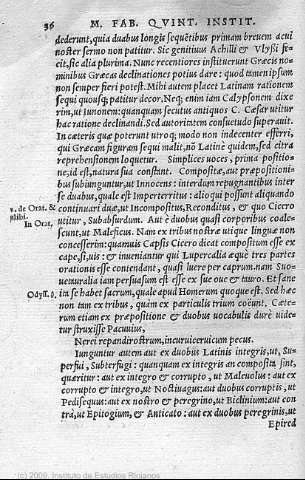 36 M. FAB. QVINT. INSTIT.
dederunt, quia duabus longis sequētibus primam breuem acui
noster sermo non patitur. Sic genitiuus Achilli & Vlyssi fe-
cit, sic alia plurima. Nunc recentiores instituerunt Græcis no-
minibus Græcas declinationes potius dare: quod tamen ipsum
non semper fieri potest. Mihi autem placet Latinam rationem
sequi quousq; patitur decor, Neq; enim iam Calypsonem dixe
rim, ut Iunonem: quanquam secutus antiquos C. Cæsar utitur
hac ratione declinandi. Sed autoritatem consuetudo superauit.
In cæteris quæ poterunt utroq; modo non indecenter efferri,
qui Græcam figuram sequi malit, nō Latinè quidem, sed citra
reprehensionem loquetur. Simplices uoces, prima positio-
ne, id est, natura sua constant. Compositæ, aut præpositioni-
bus subiunguntur, ut Innocens: interdum repugnantibus inter
se duabus, quale est Imperterritus: alioqui possunt aliquando
2. de Orat. & continuari duæ, ut Incompositus, Reconditus, & quo Cicero
alibi.
In Orat. utitur, Subabsurdum. Aut è duobus quasi corporibus coale-
scunt, ut Maleficus. Nam ex tribus nostræ utique linguæ non
concesserim: quamuis Capsis Cicero dicat compositum esse ex
cape, si, uis: & inueniantur qui Lupercalia æquè tres partes
orationis esse contendant, quasi luere per caprum. nam Suo-
uetauralia iam persuasum est esse ex sue oue & tauro. Et sane
Odyss. δ. in se habet sacrum, quale apud Homerum quoque est. Sed hæc
non tam ex tribus, quàm ex particulis trium coëunt. Cæte-
rum etiam ex præpositione & duobus uocabulis durè uide-
tur struxisse Pacuuius,
Nerei repandirostrum, incuruiceruicum pecus.
Iunguntur autem aut ex duobus Latinis integris, ut, Su-
perfui, Subterfugi: quanquam ex integris an composita sint,
quæritur: aut ex integro & corrupto, ut Maleuolus: aut ex
corrupto & integro, ut Noctiuagus: aut duobus corruptis, ut
Pedisequus: aut ex nostro & peregrino, ut Biclinium: aut con
trà, ut Epitogium, & Anticato: aut ex duobus peregrinis, ut
Epired
(c) 2009, Instituto de Estudios Riojanos